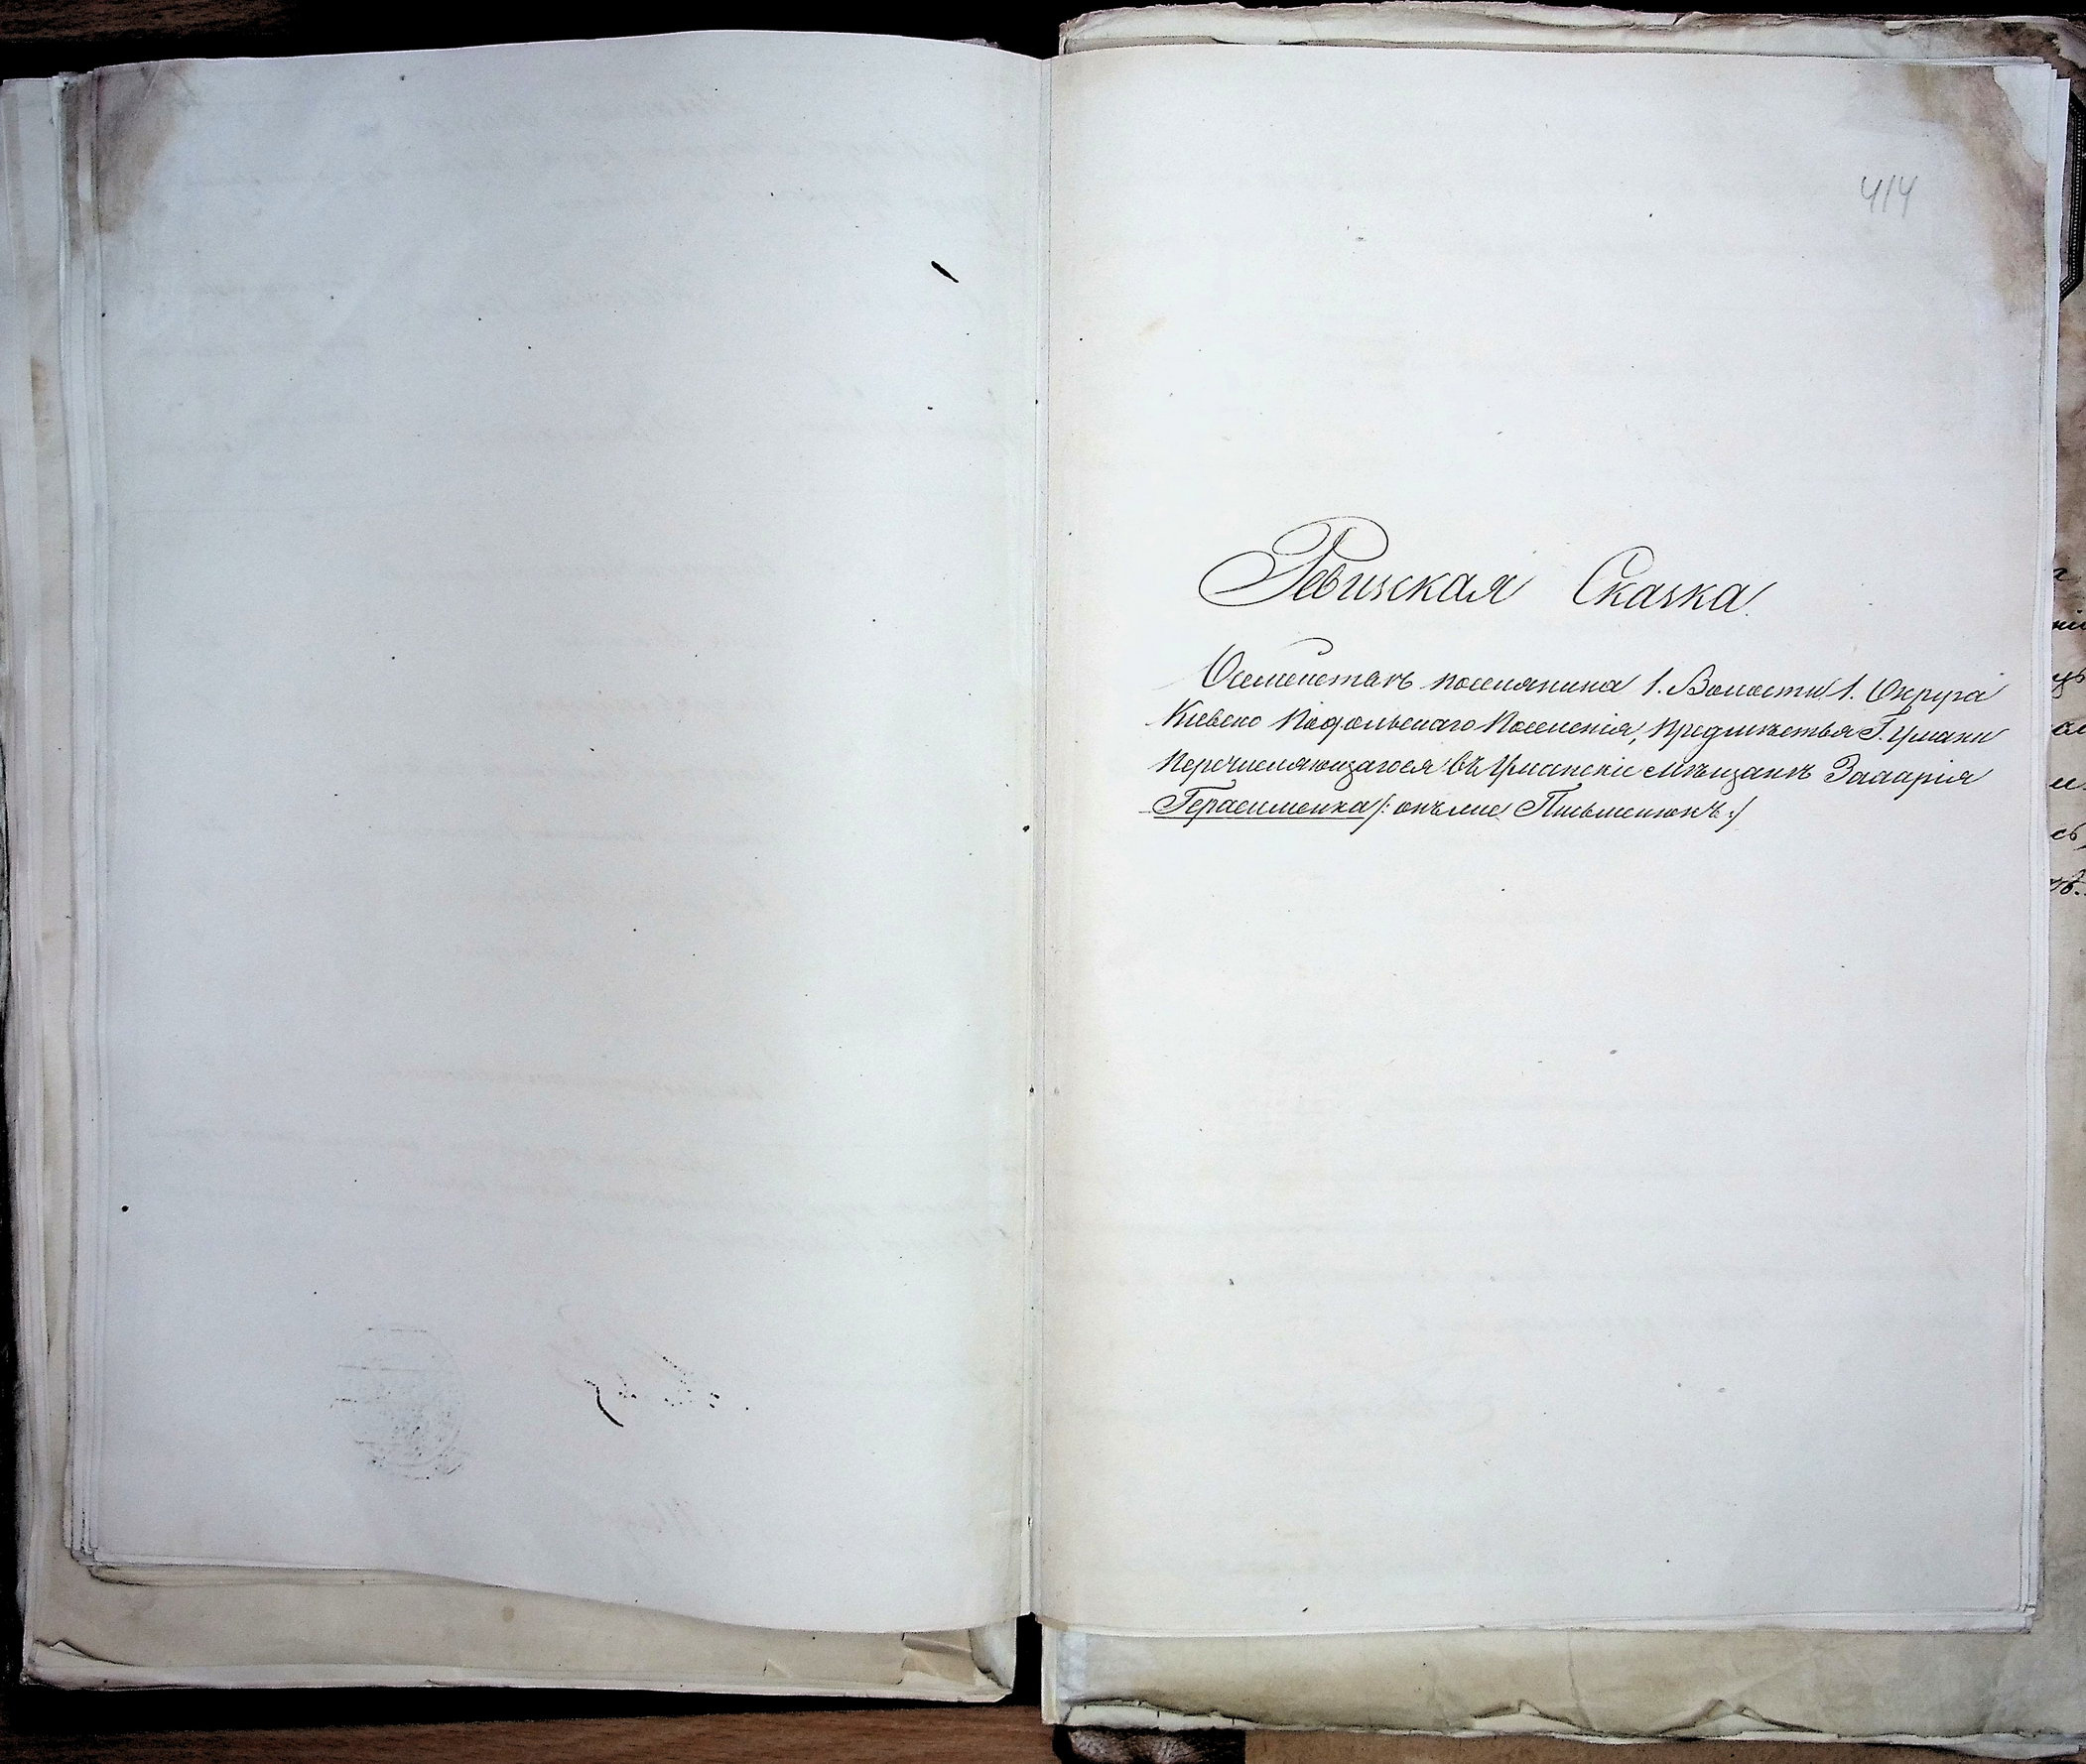 414
Ревизская Сказка.
О семействѣ поселянина 1. Волости 1. Округа
Кіевско Подольскаго Поселенія, Предмѣстья Г. Умани
Перечисляющагося въ Уманскіе мѣщанѣ Захарія
Герасименка /: онъ же Письменюкъ :/